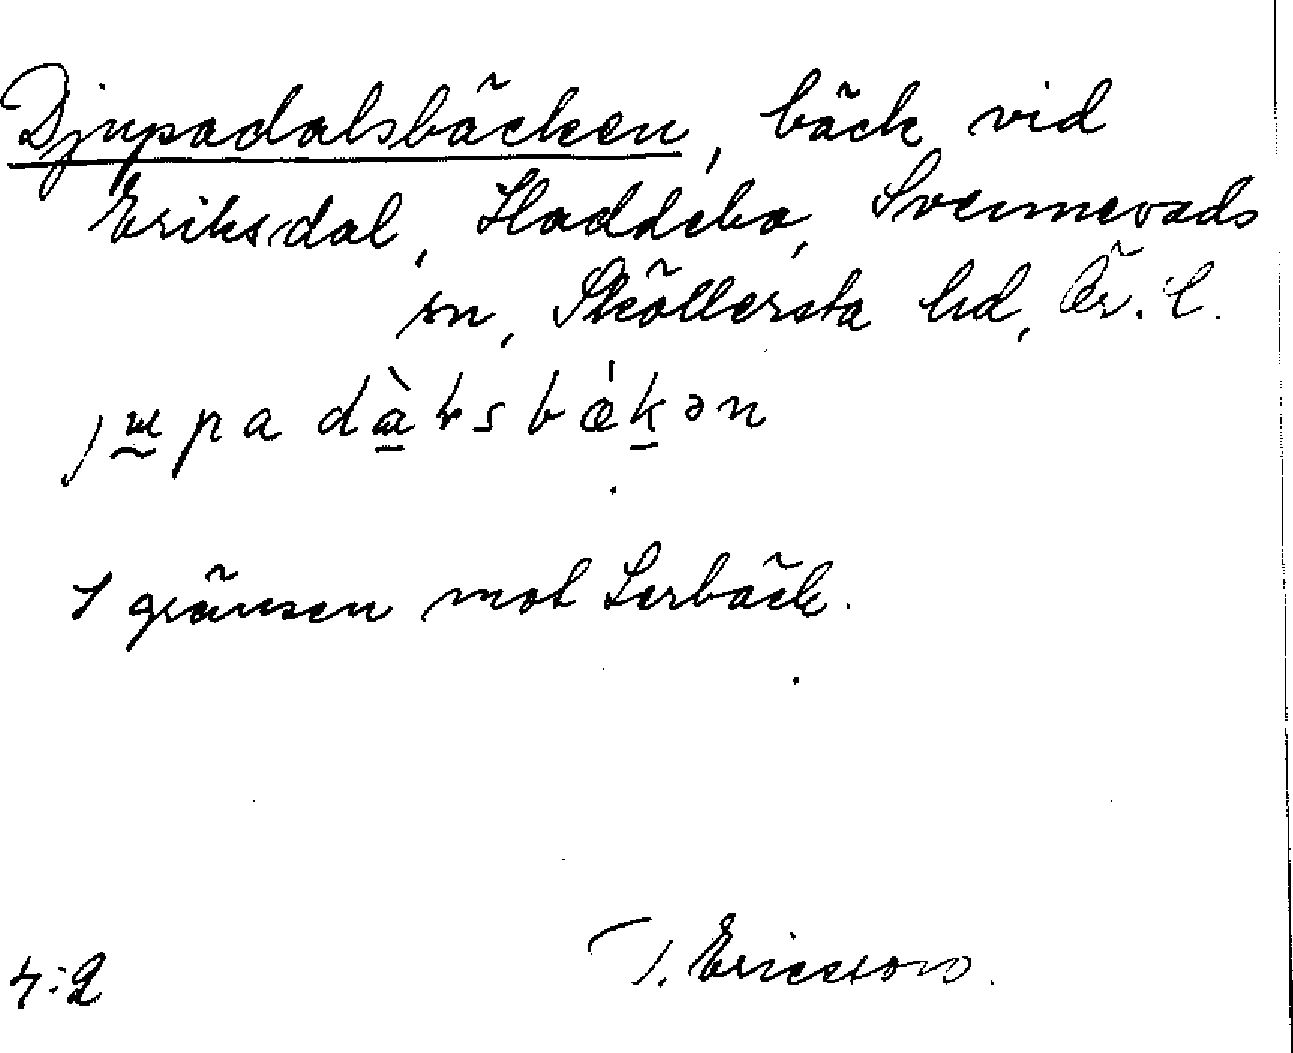 Djupadalsbäcken, bäck vid
Eriksdal, Haddebo, Svennevads
sn, Sköllersta hd, Ör. l.
padàlsbǽkən
I gränsen mot Lerbäck.
T. Ericsson.
4:2